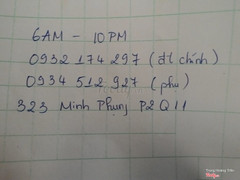 6AM - 10PM
0932 174 297 (đt chính)
0934 512 927 (phụ)
323 Minh Phụng P2 Q11